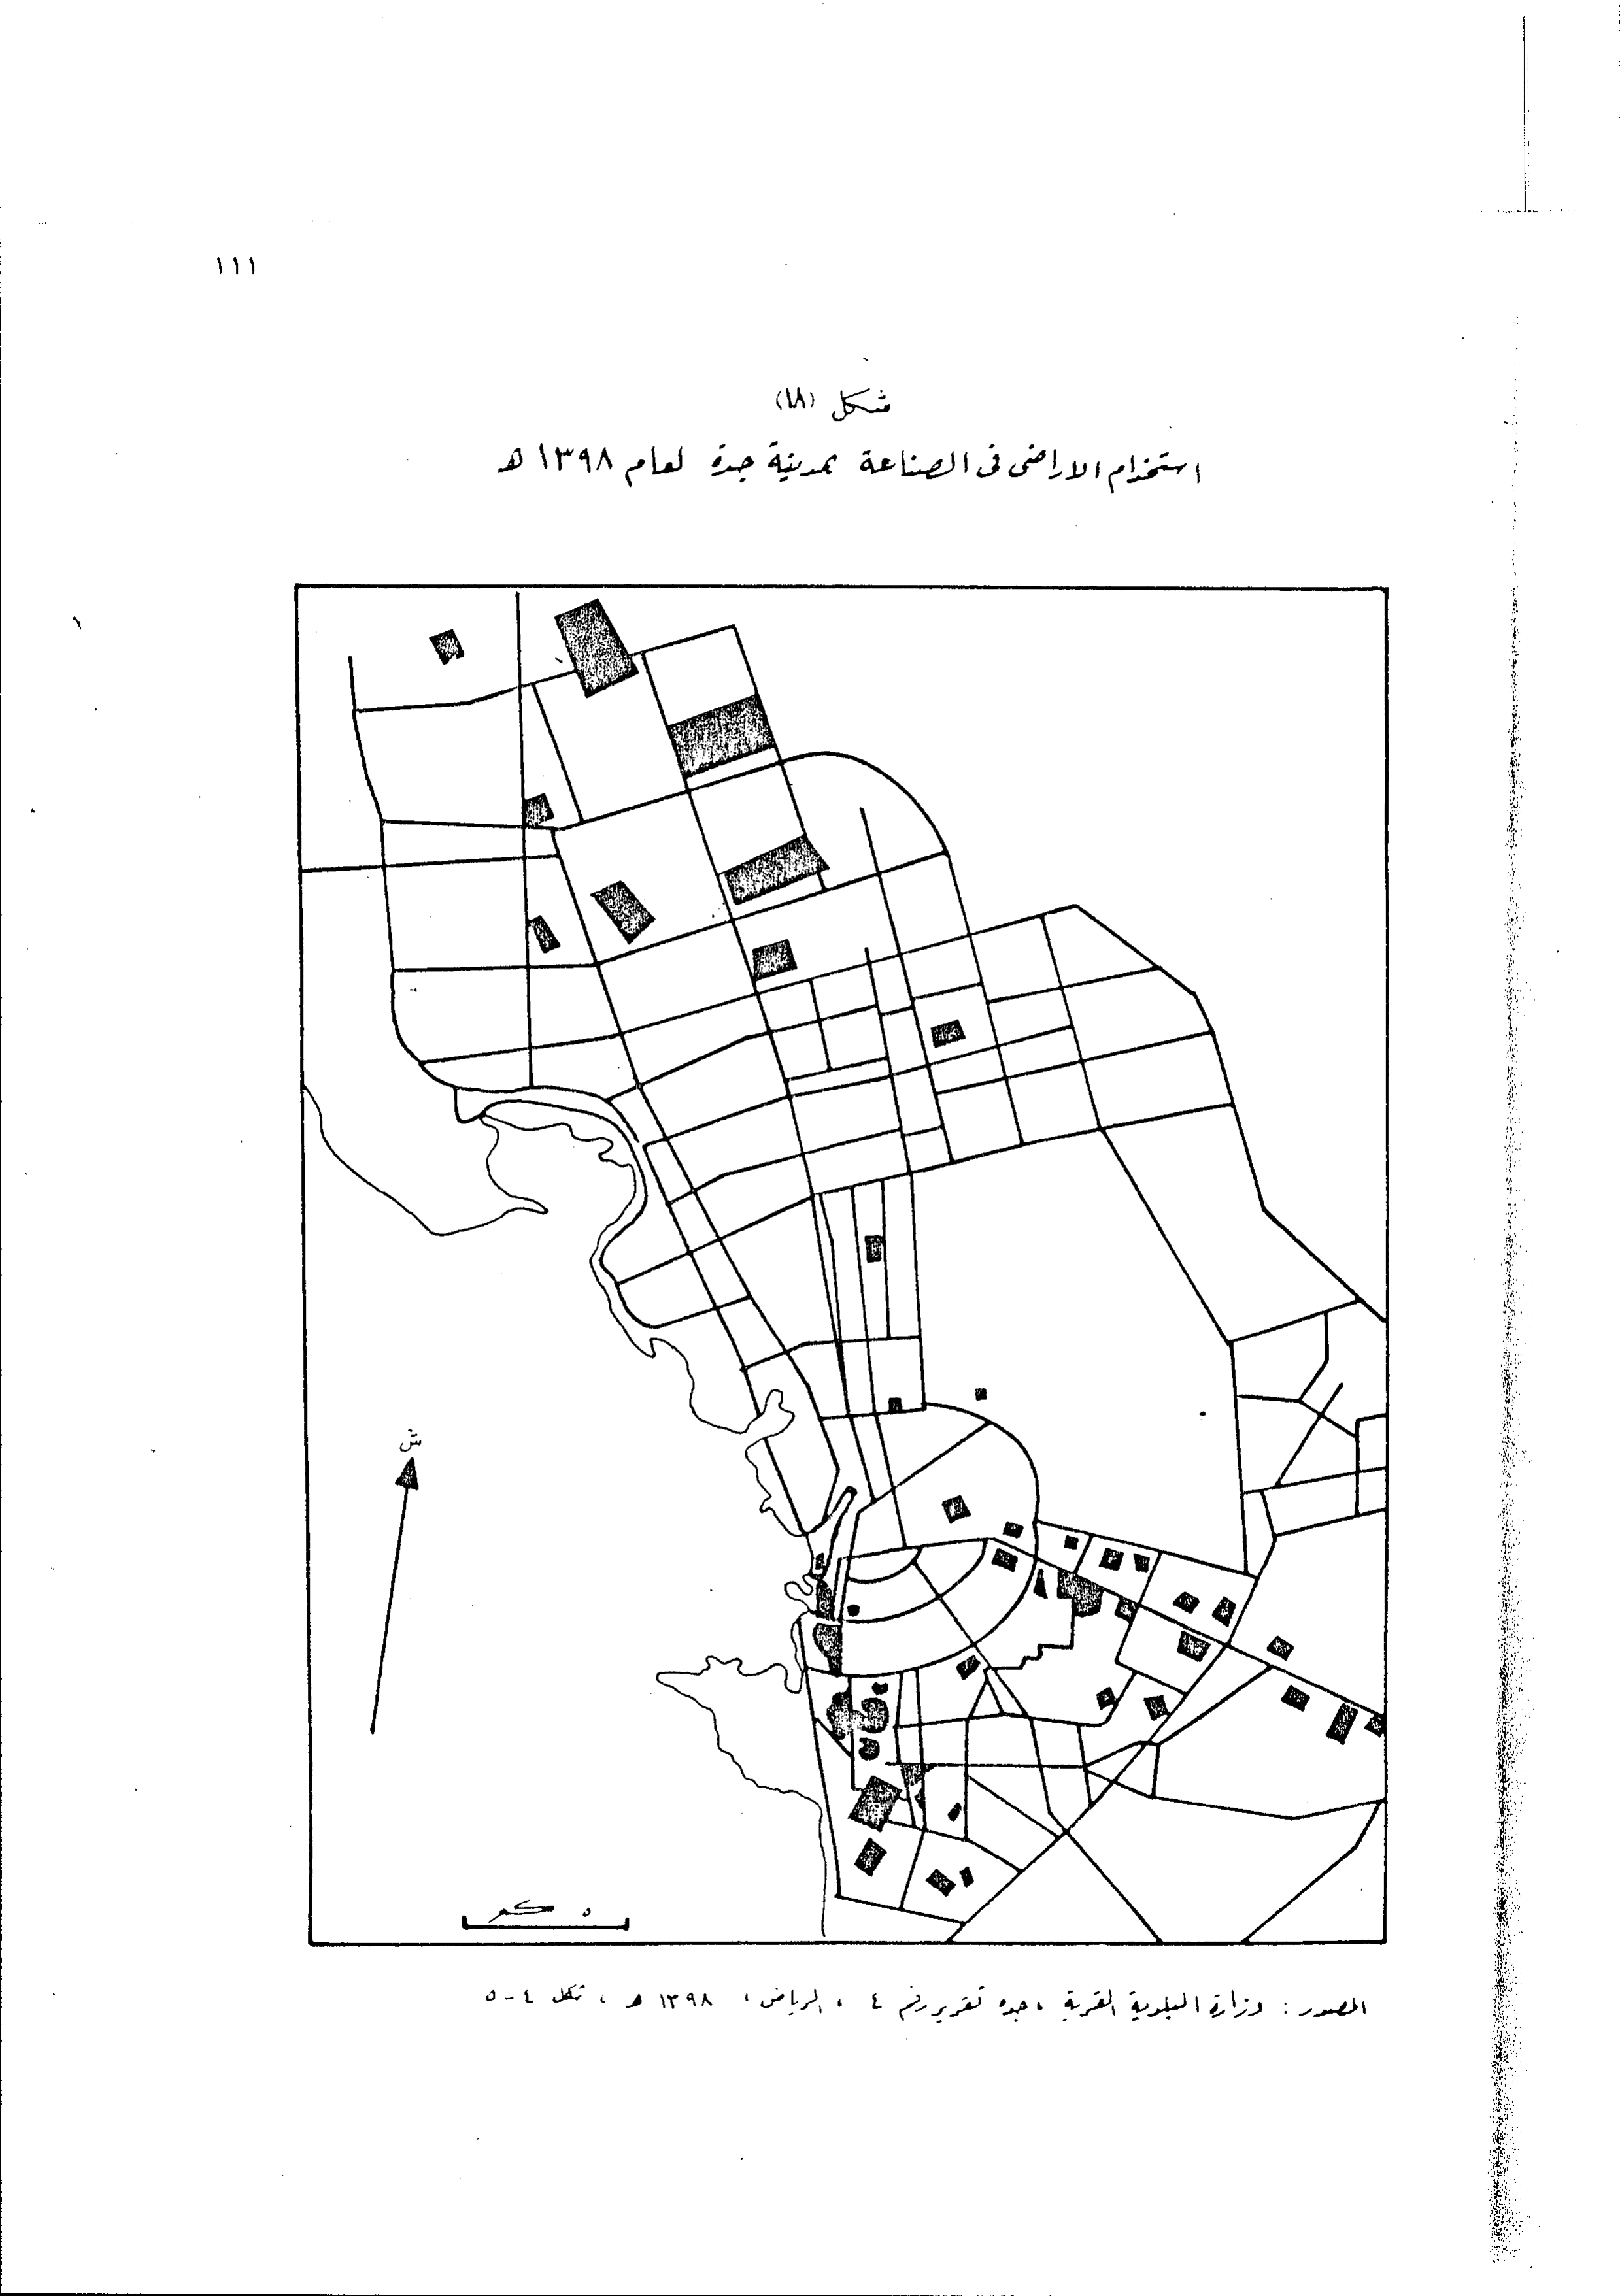 ١١١
شكل (١٨)
استخدام الاراضى فى الصناعة بمدينة جدة لعام ١٣٩٨ هـ
ش
٥ كم
المصدر : وزارة البلدية القروية ، جده تقرير رقم ٤ ، الرياض ، ١٣٩٨ هـ ، شكل ٤ - ٥